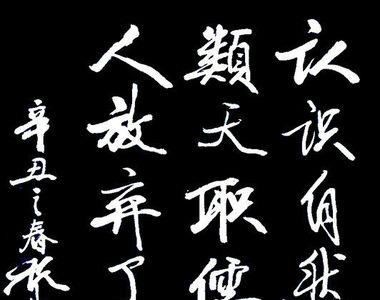 认识自然
類天职儒
人放弃了
辛丑之春